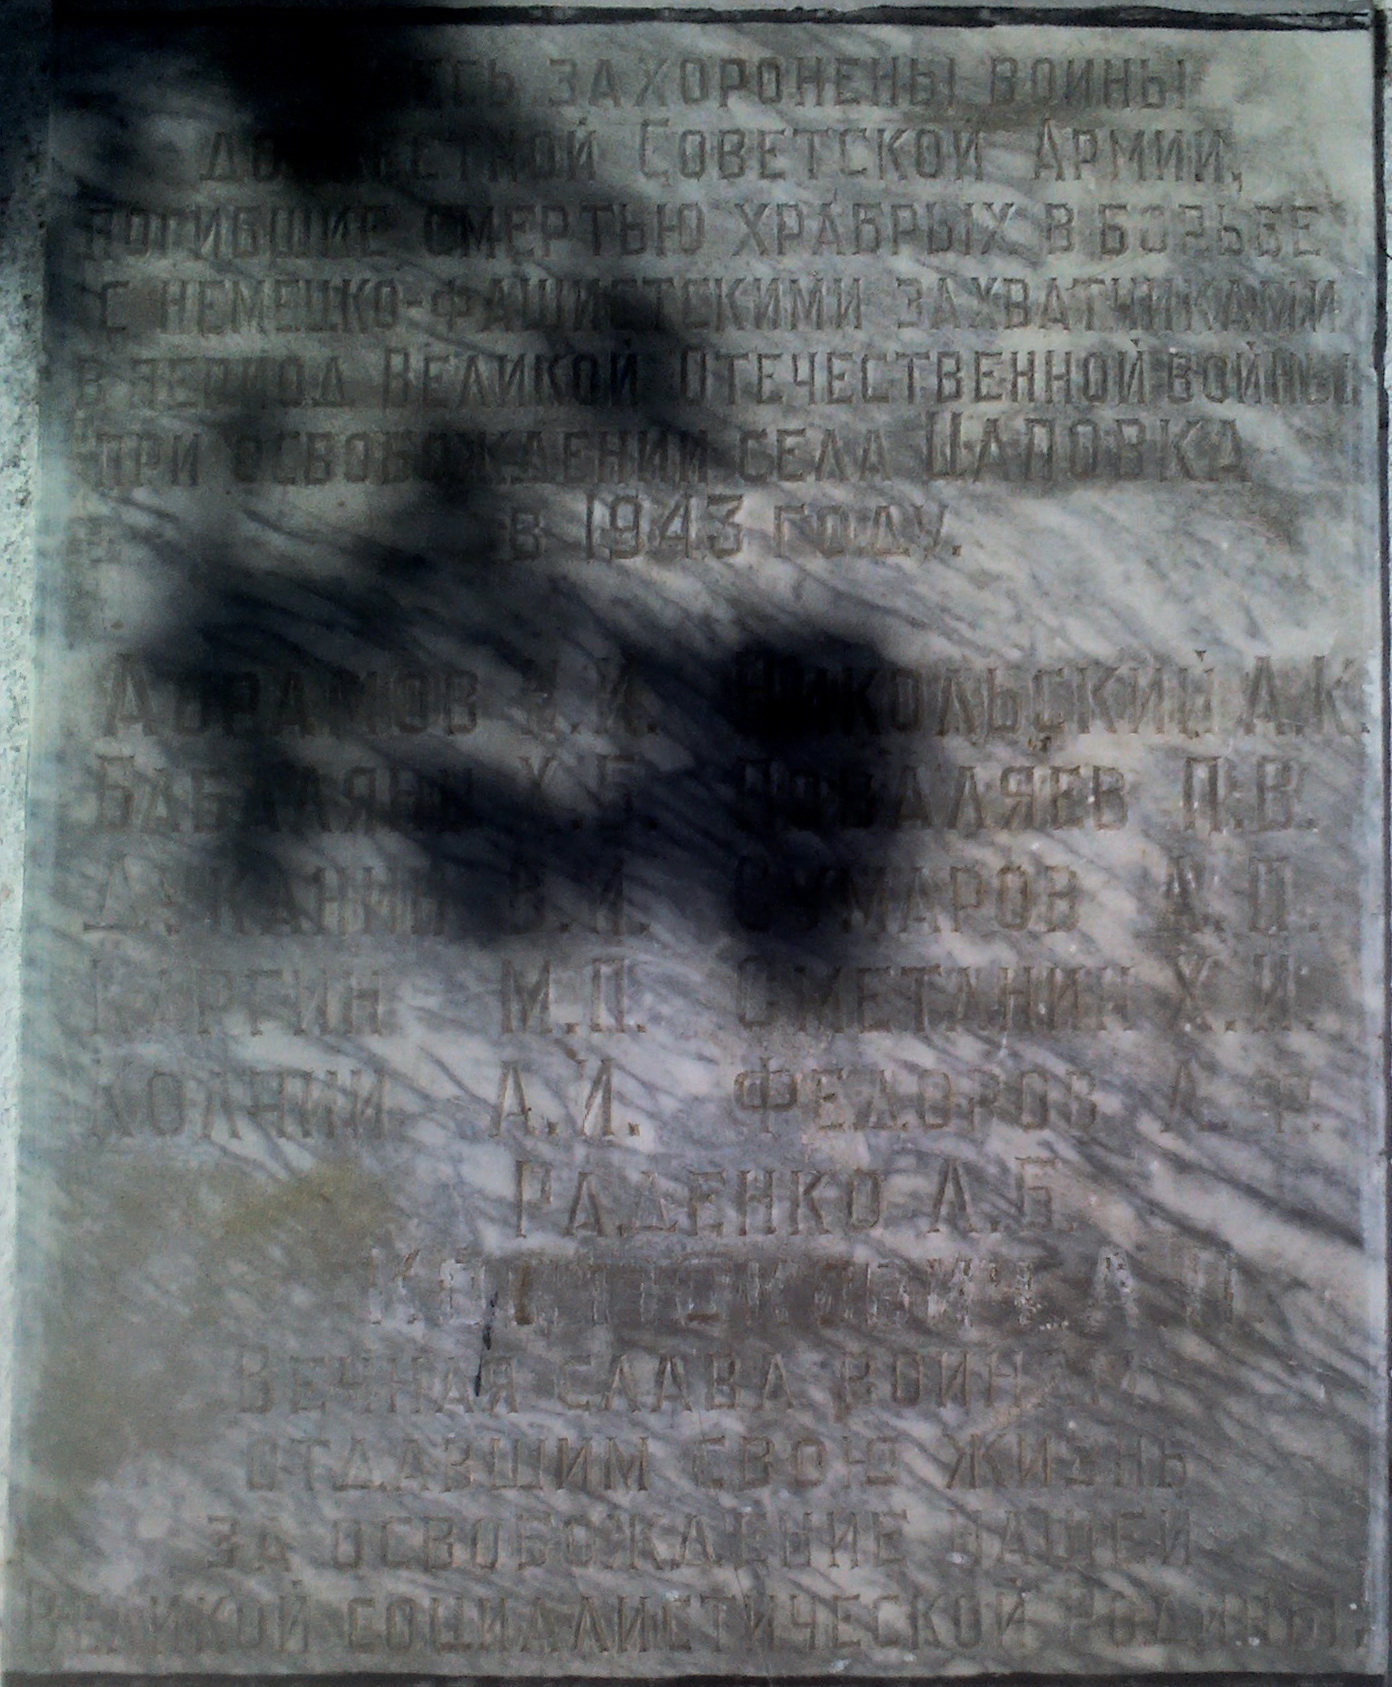 ЗДЕСЬ ЗАХОРОНЕНЫ ВОИНЫ
ДОБЛЕСТНОЙ СОВЕТСКОЙ АРМИИ,
ПОГИБШИЕ СМЕРТЬЮ ХРАБРЫХ В БОРЬБЕ
С НЕМЕЦКО-ФАШИСТСКИМИ ЗАХВАТЧИКАМИ
В ПЕРИОД ВЕЛИКОЙ ОТЕЧЕСТВЕННОЙ ВОЙНЫ
ПРИ ОСВОБОЖДЕНИИ СЕЛА ЦАПОВКА
В 1943 ГОДУ.
АБРАМОВ И. НИКОЛЬСКИЙ А.К.
Х.Б. ПОВАЛЯЕВ П.В.
ДУКАНИН В.И. СУМАРОВ А.П.
КАРГИН М.П. СМЕТАНИН Х.И.
ХОЛКИН А.И. ФЕДОРОВ А.Ф.
РАДЕНКО А.Б.
А.П.
ВЕЧНАЯ СЛАВА ВОИНАМ
ОТДАВШИМ СВОЮ ЖИЗНЬ
ЗА ОСВОБОЖДЕНИЕ НАШЕЙ
ВЕЛИКОЙ СОЦИАЛИСТИЧЕСКОЙ РОДИНЫ.